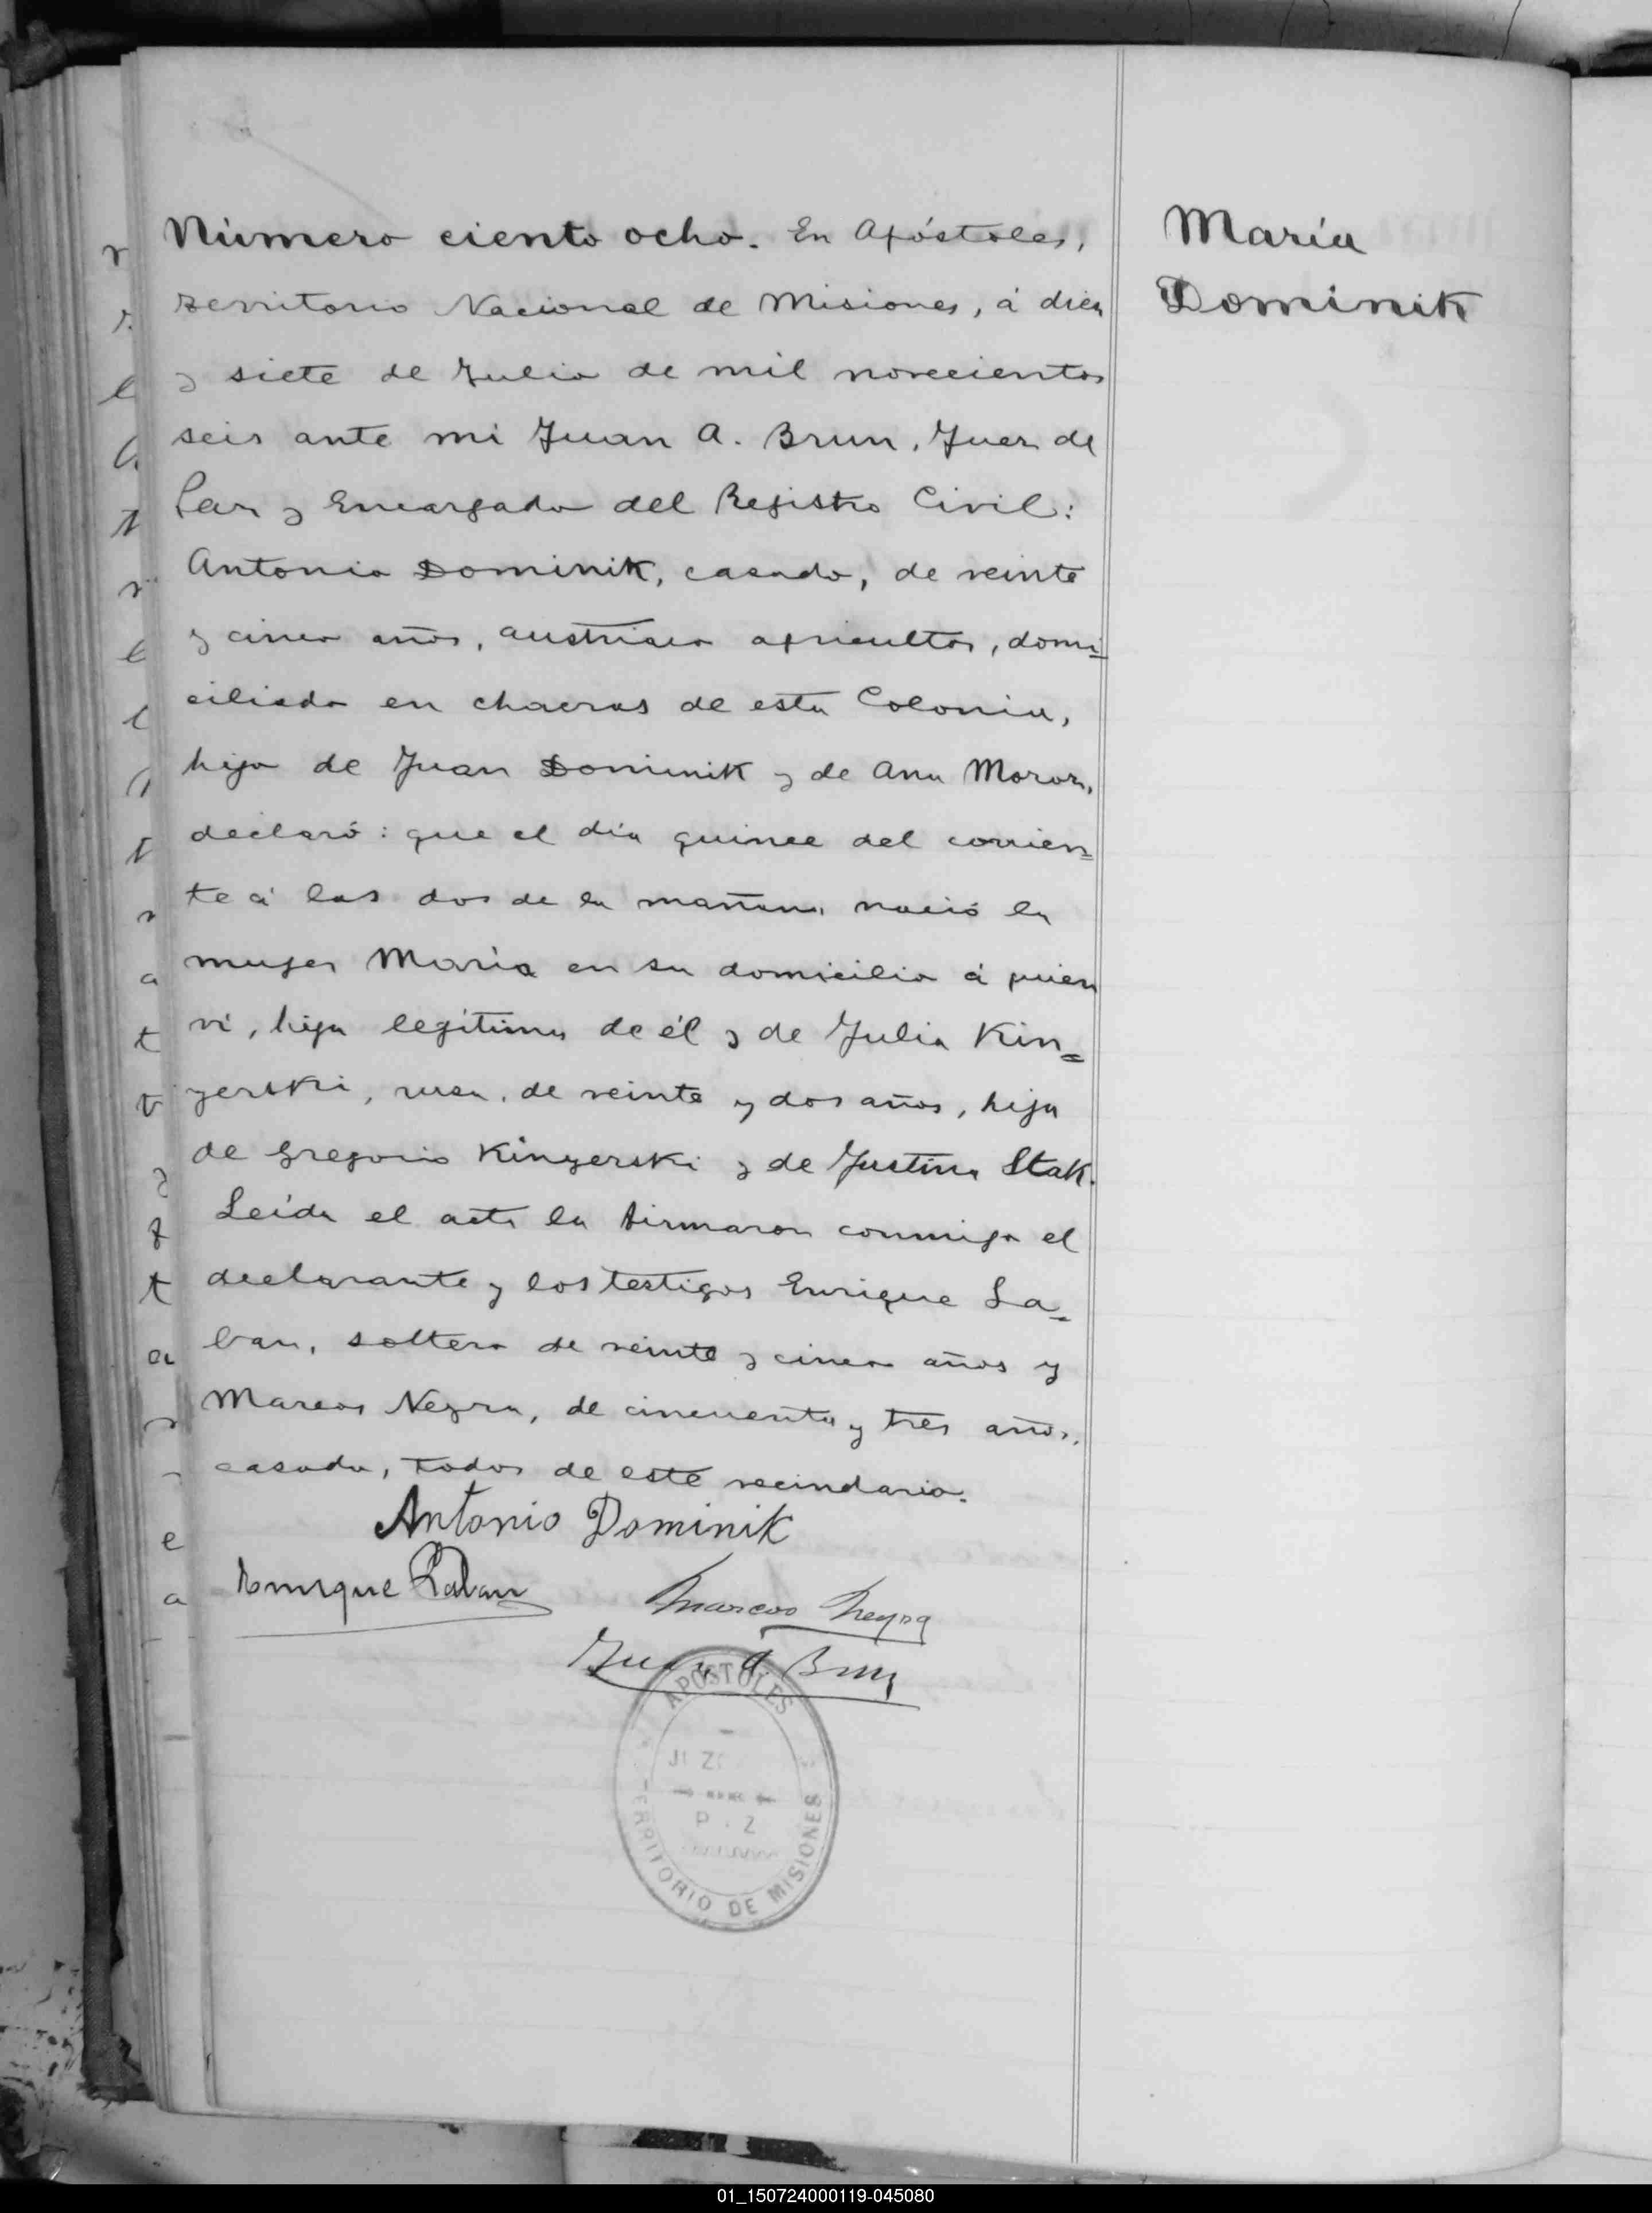 Número ciento ocho. En Apóstoles,
territorio Nacional de Misiones, á diez
y siete de Julio de mil novecientos
seis ante mi Juan A. Brun, Juez de
Paz y Encargado del Registro Civil:
Antonio Dominik, casado, de veinte
y cinco años, austriaco agricultor, domi=
ciliado en chacras de esta Colonia,
hijo de Juan Dominik y de Ana Moroz,
declaró: que el día quince del corrien=
te á las dos de la mañana nació la
mujer María en su domicilio á quien
ví, hija legítima de él y de Julia Kin=
yerski, rusa, de veinte y dos años, hija
de Gregorio Kinyerski y de Justina Stak.
Leída el acta la firmaron conmigo el
declarante y los testigos Enrique La=
ban, soltero de veinte y cinco años y
Marcos Neyra, de cincuenta y tres años,
casado, todos de este vecindario.
Antonio Dominik
Enrique Laban
Marcos Neyra
Juan A. Brun
APOSTOLES
TERRITORIO DE MISIONES
María
Dominik
01_150724000119-045080